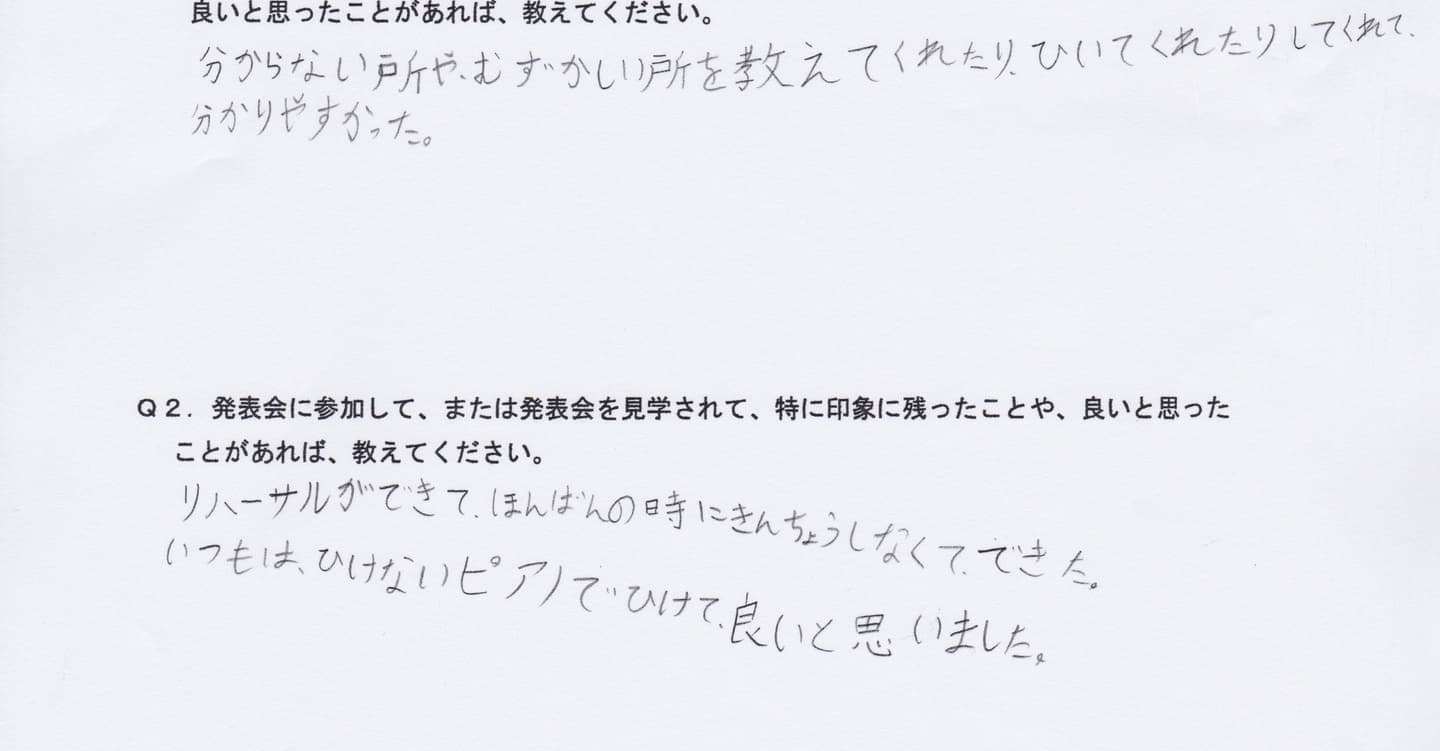 良いと思ったことがあれば、教えてください。
分からない所や、むずかしい所を教えてくれたり、ひいてくれたりしてくれて、
分かりやすかった。
Q2．発表会に参加して、または発表会を見学されて、特に印象に残ったことや、良いと思った
ことがあれば、教えてください。
リハーサルができて、ほんばんの時にきんちょうしなくて、できた。
いつもは、ひけないピアノでひけて、良いと思いました。